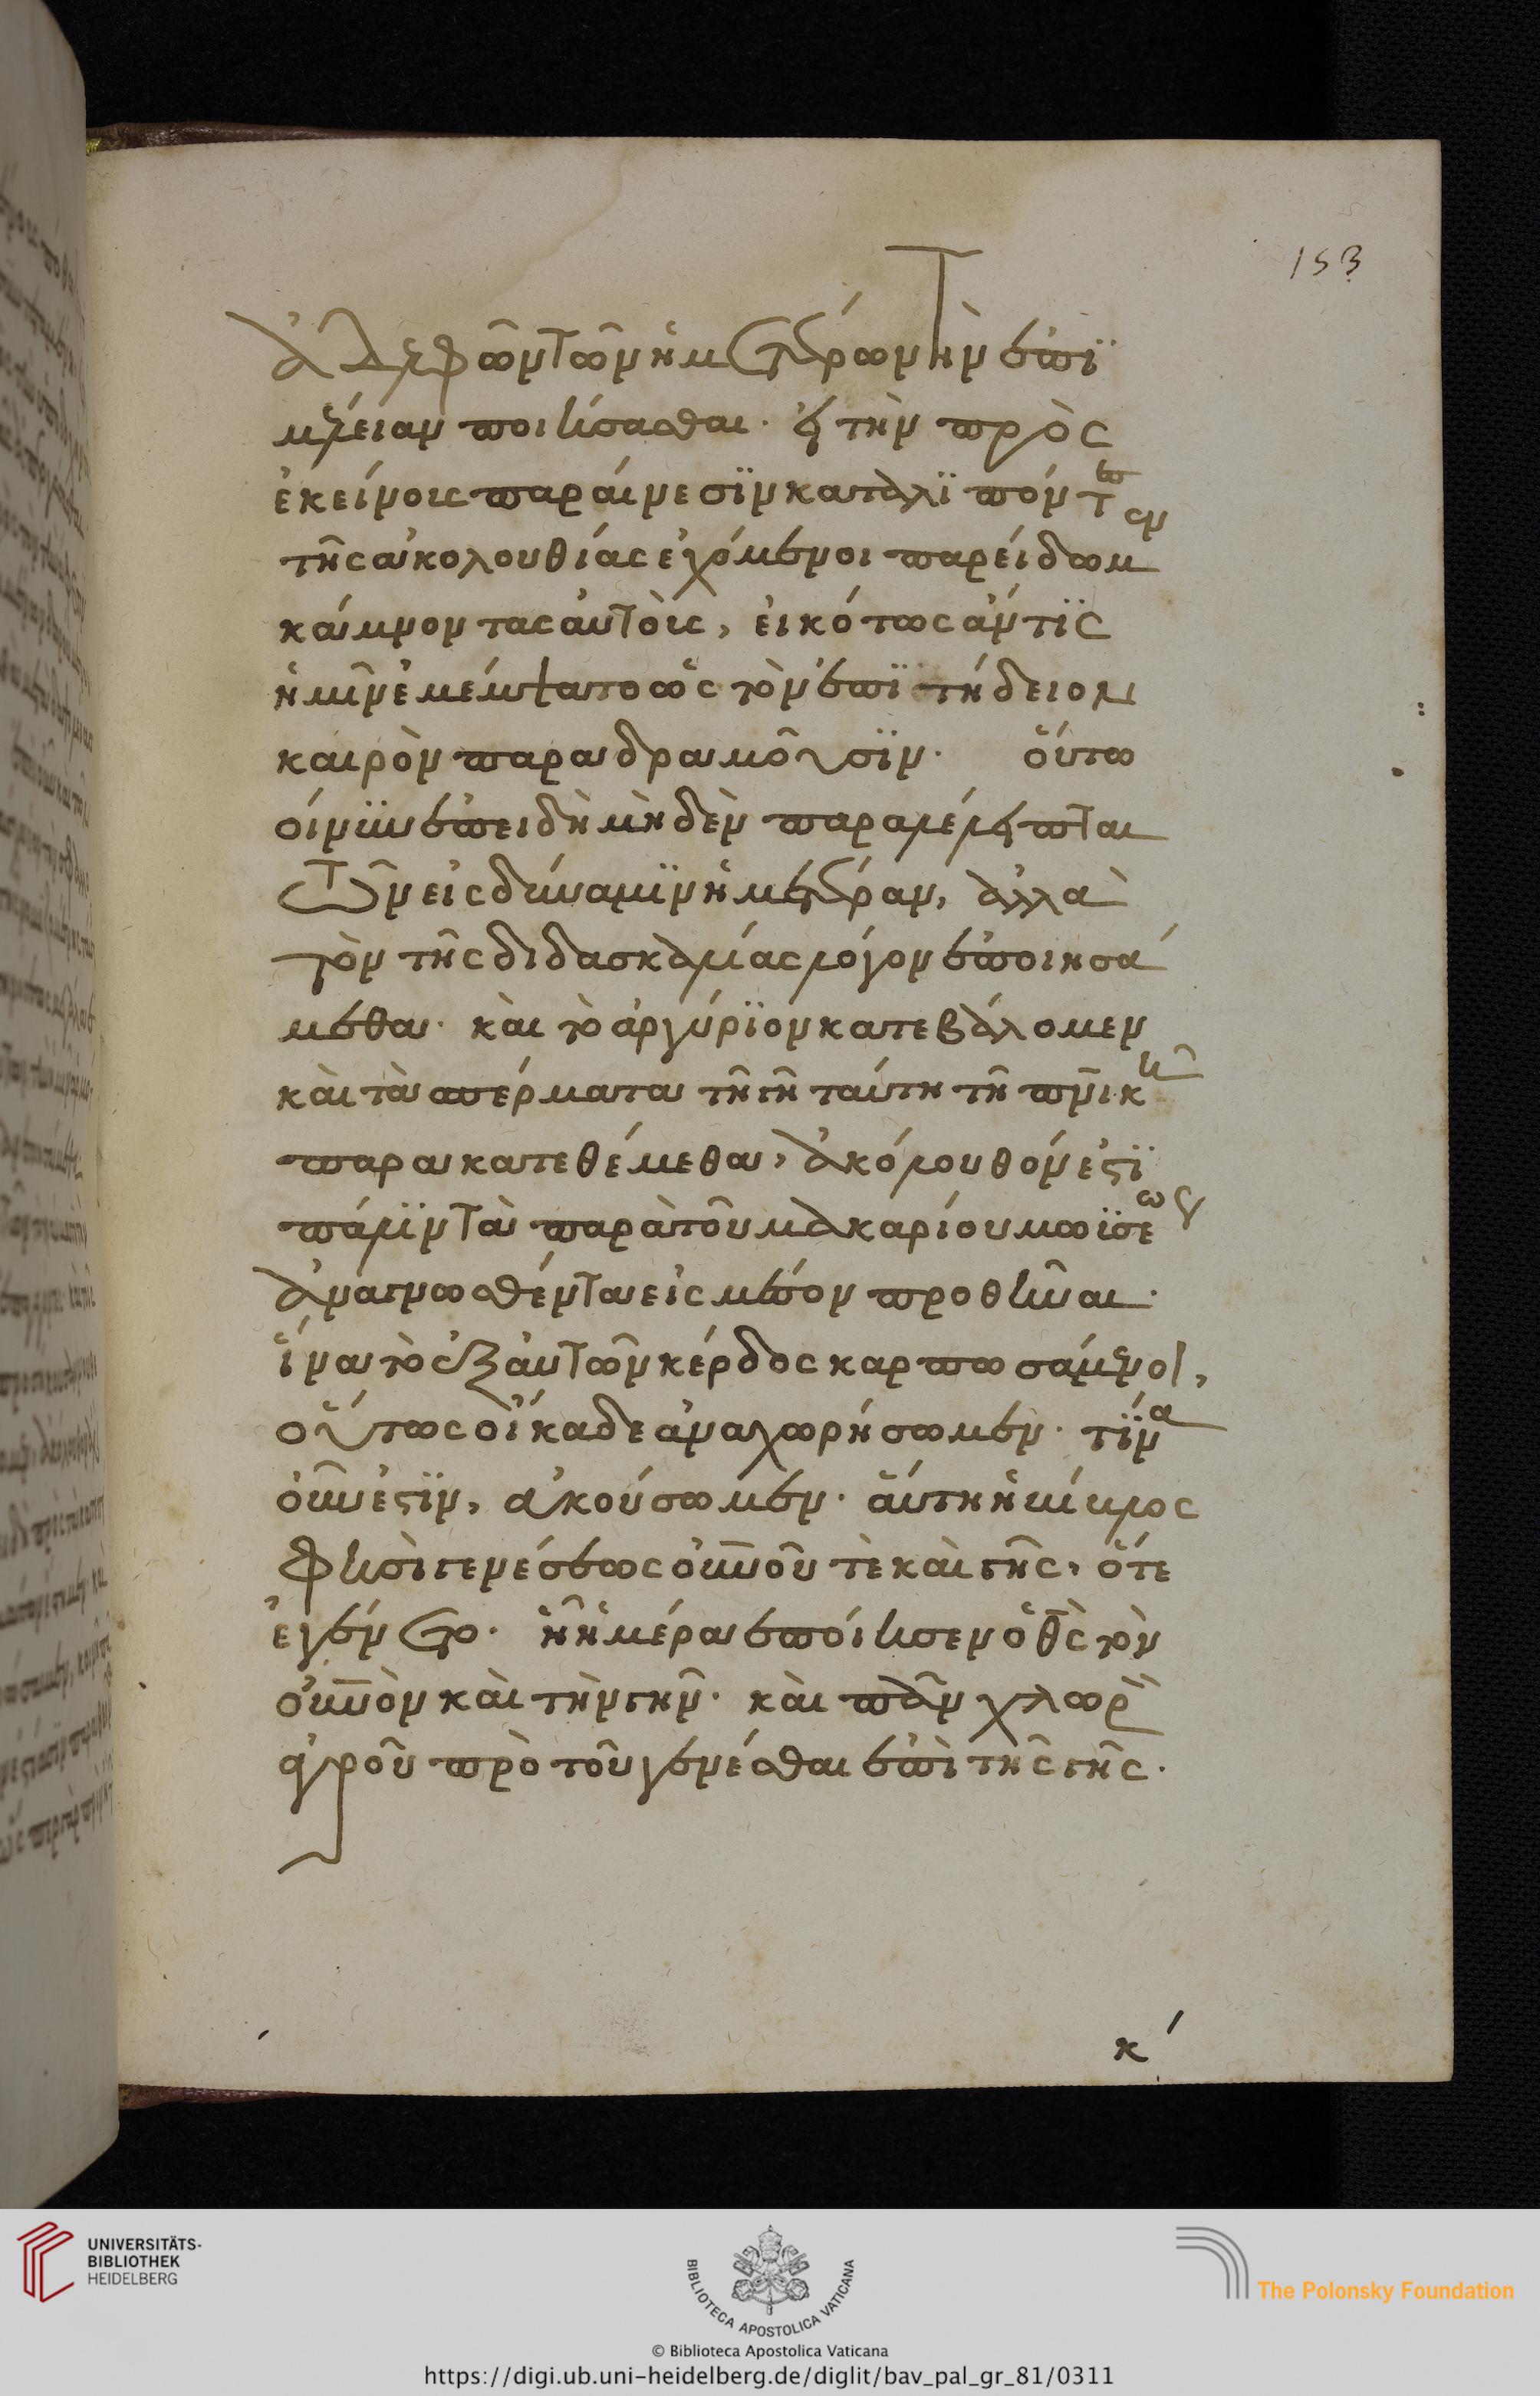 153
ἀδελφῶν τῶν ἡμετέρων τὴν ἐπϊ
μέλειαν ποιήσασθαι· ἢ τὴν πρὸς
ἐκείνους παραίνεσϊν καταλϊπόντες
τῆς ἀκολουθίας ἐχόμενοι παρείδομεν
κάμνοντας αὐτοὺς, εἰκότως ἄν τϊς
ἡμῖν ἐμέμψατο ὡς τὸν ἐπϊτήδειον
καιρὸν παραδραμοῦσϊν· οὕτω
οἱ νῦν ἐπειδὴ μηδὲν παραλέλειπται
τῶν εἰς δύναμϊν ἡμετέραν, ἀλλὰ
τὸν τῆς διδασκαλίας λόγον ἐποιησά
μεθα· καὶ τὸ ἀργύρϊον κατεβάλομεν
καὶ τὰ σπέρματα τῆ γῆ ταύτη τῆ πνικῆ
παρακατεθέμεθα, ἀκόλουθόν ἐστϊ
πάλϊν τὰ παρὰ τοῦ μακαρίου μωϊσέως
ἀναγνωσθέντα εἰς μέσον προθεῖναι·
ἵνα τὸ ἐξ αὐτῶν κέρδος καρπωσάμενοι,
οὕτως οἴκαδε ἀναχωρήσωμεν· τίνα
οὖν ἐστϊν, ἀκούσωμεν· αὕτη ἡ βίβλος
φησὶ γενέσεως οὐνοῦ τὲ καὶ γῆς, ὅτε
ἐγένετο· ἧ ἡμέρα ἐποίησεν ὁ θς τὸν
οὐνὸν καὶ τὴν γῆν· καὶ πᾶν χλωρὸν
ἀγροῦ πρὸ τοῦ γενέσθαι ἐπὶ τῆς γῆς·
κ´
UNIVERSITÄTS-
BIBLIOTHEK
HEIDELBERG
BIBLIOTECA APOSTOLICA VATICANA
The Polonsky Foundation
© Biblioteca Apostolica Vaticana
https://digi.ub.uni-heidelberg.de/diglit/bav_pal_gr_81/0311